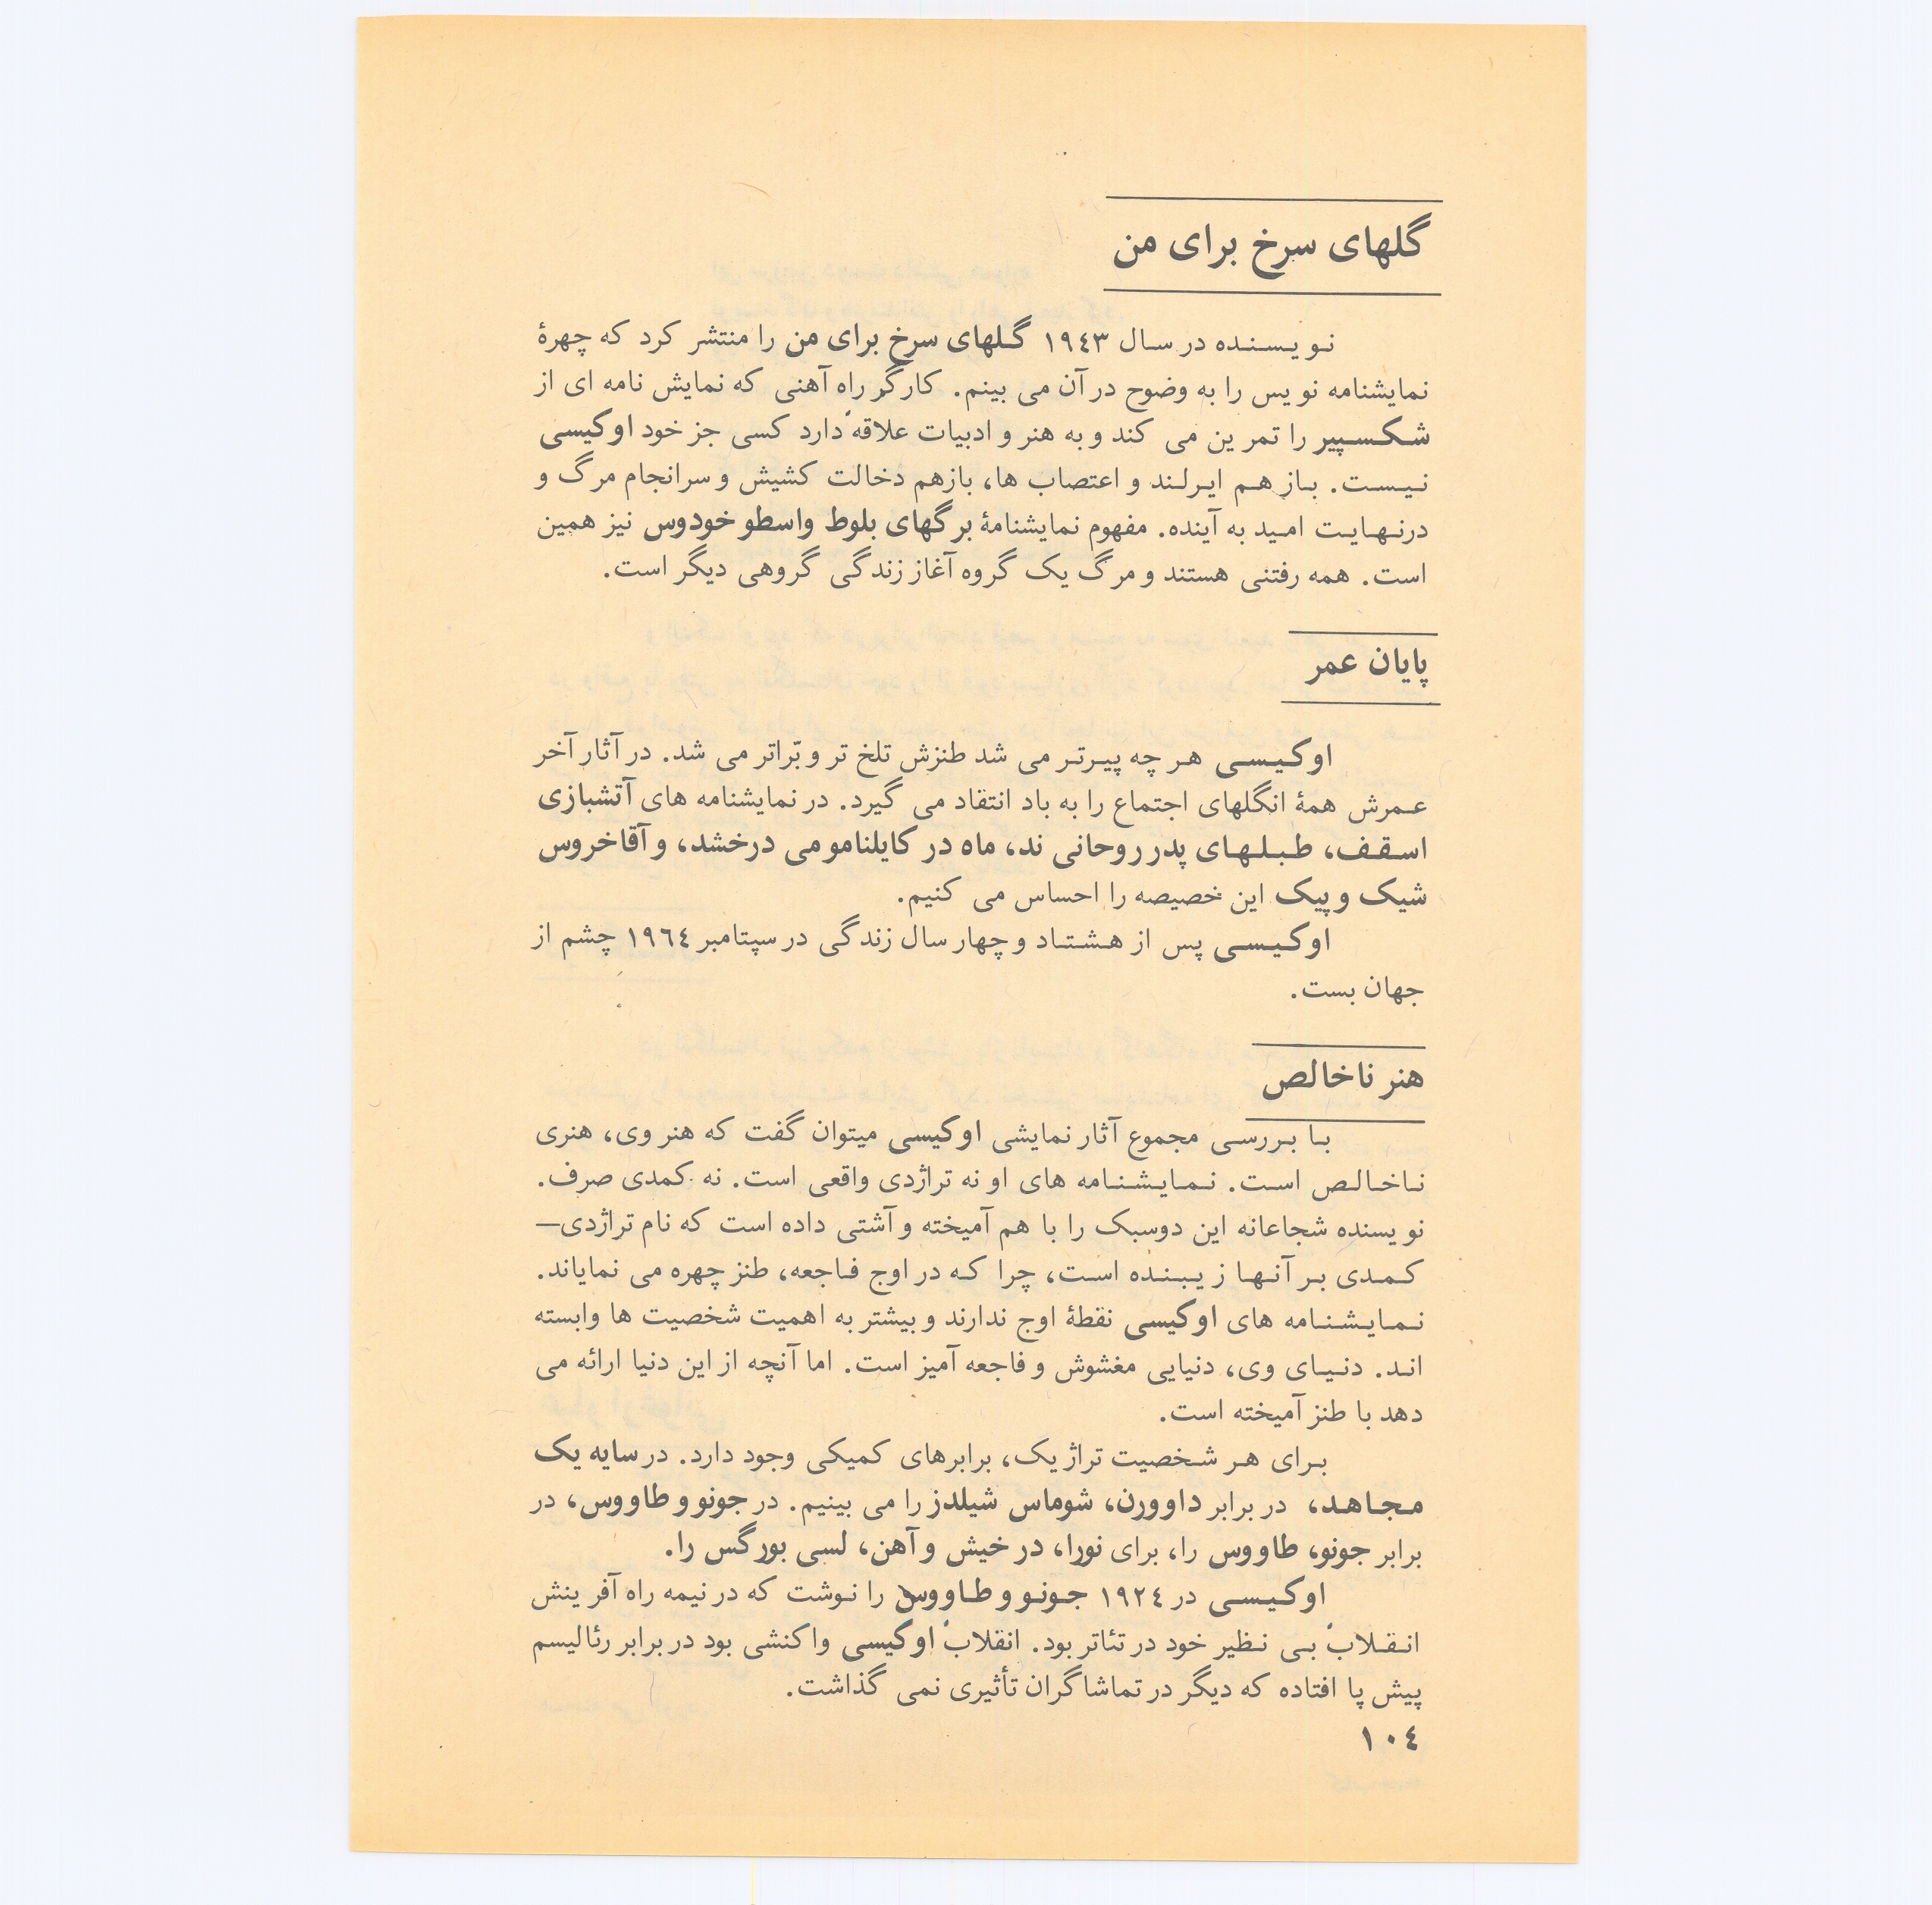 گلهای سرخ برای من
نویسنده در سال ۱۹۴۳ گلهای سرخ برای من را منتشر کرد که چهرهٔ
نمایشنامه نویس را به وضوح در آن می بینم. کارگر راه آهنی که نمایش نامه ای از
شکسپیر را تمرین می کند و به هنر و ادبیات علاقه دارد کسی جز خود اوکیسی
نیست. باز هم ایرلند و اعتصاب ها، بازهم دخالت کشیش و سرانجام مرگ و
درنهایت امید به آینده. مفهوم نمایشنامهٔ برگهای بلوط واسطو خودوس نیز همین
است. همه رفتنی هستند و مرگ یک گروه آغاز زندگی گروهی دیگر است.
پایان عمر
اوکیسی هر چه پیرتر می شد طنزش تلخ تر و برّاتر می شد. در آثار آخر
عمرش همهٔ انگلهای اجتماع را به باد انتقاد می گیرد. در نمایشنامه های آتشبازی
اسقف، طبلهای پدر روحانی ند، ماه در کایلنامو می درخشد، و آقاخروس
شیک و پیک این خصیصه را احساس می کنیم.
اوکیسی پس از هشتاد و چهار سال زندگی در سپتامبر ۱۹۶۴ چشم از
جهان بست.
هنر ناخالص
با بررسی مجموع آثار نمایشی اوکیسی میتوان گفت که هنر وی، هنری
ناخالص است. نمایشنامه های او نه تراژدی واقعی است. نه کمدی صرف.
نویسنده شجاعانه این دوسبک را با هم آمیخته و آشتی داده است که نام تراژدی—
کمدی بر آنها زیبنده است، چرا که در اوج فاجعه، طنز چهره می نمایاند.
نمایشنامه های اوکیسی نقطهٔ اوج ندارند و بیشتر به اهمیت شخصیت ها وابسته
اند. دنیای وی، دنیایی مغشوش و فاجعه آمیز است. اما آنچه از این دنیا ارائه می
دهد با طنز آمیخته است.
برای هر شخصیت تراژیک، برابرهای کمیکی وجود دارد. در سایه یک
مجاهد، در برابر داوورن، شوماس شیلدز را می بینیم. در جونو و طاووس، در
برابر جونو، طاووس را، برای نورا، در خیش و آهن، لسی بورگس را.
اوکیسی در ۱۹۲۴ جونو و طاووس را نوشت که در نیمه راه آفرینش
انقلاب بی نظیر خود در تئاتر بود. انقلاب اوکیسی واکنشی بود در برابر رئالیسم
پیش پا افتاده که دیگر در تماشاگران تأثیری نمی گذاشت.
۱۰۴